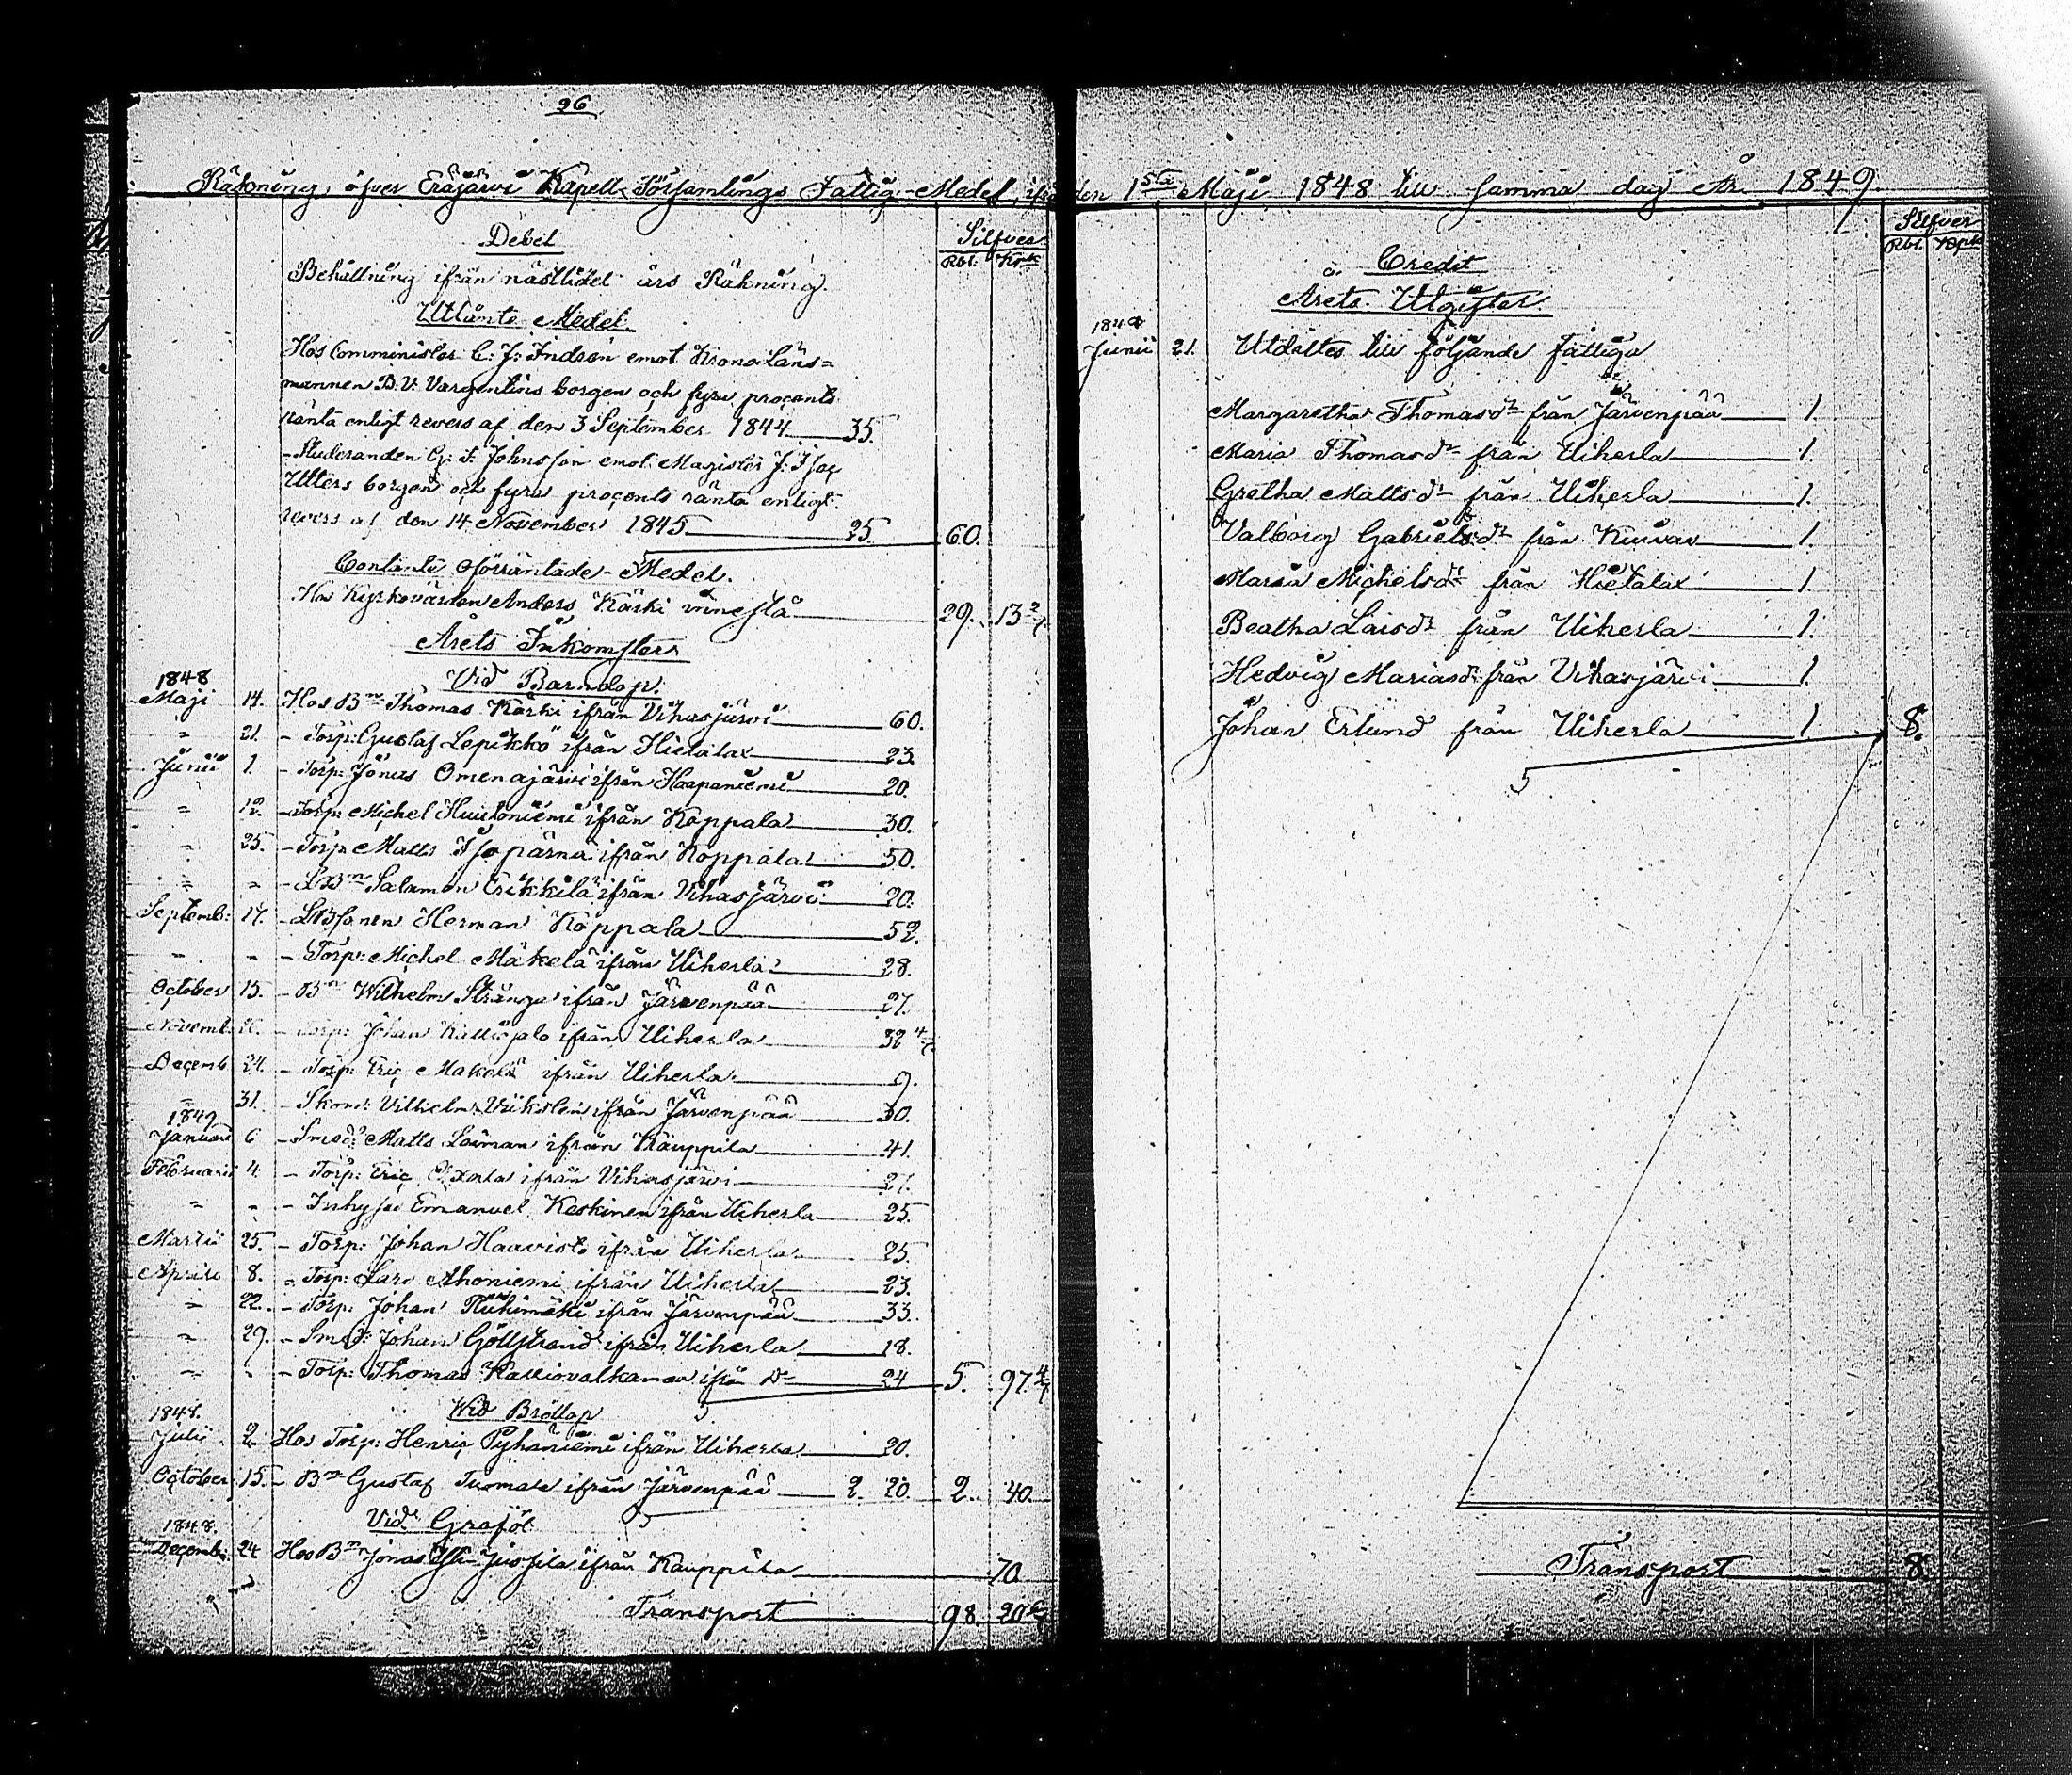 96
Räkning öfver Eräjärvi Kapell Församlings Fattig-Medel, ifrån den 1sta Maji 1848 till samma dag År 1849.
Debet
Silfver
Rbl. Kpk
Behållning ifrån nästlidet års Räkning.
Utlånte Medel.
Hos Comminister C: J: Indrén emot Krono Läns=
mannen B. V. Vargentins borgen och fyra procents
ränta enligt revers af den 3 September 1844 35.
- Studeranden G: F: Johnsson emot Magister J: Isac
Utters borgen och fyra procents ränta enligt
revers af den 14 November 1845 25. 60.
Contante oförräntade Medel.
Hos Kyrkovärden Anders Kärki innestå 29. 13 2/7
Årets Inkomster
Vid Barndop.
1848
Maji 14. Hos Bn Thomas Kärki ifrån Vihasjärvi 60.
" 21. - Torp: Gustaf Lepikkö ifrån Hietalax 23.
Junii 1. - Torp: Jonas Omenajärvi ifrån Haapaniemi 20.
" 12. - Torp: Michel Huutoniemi ifrån Koppala 30.
" 25. - Torp: Matts Isopärnä ifrån Koppala 50.
" " - LBn Salamon Erikkilä ifrån Vihasjärvi 20.
Septemb: 17. - LBsonen Herman Koppala 52.
" " - Torp: Michel Mäkelä ifrån Uiherla 28.
October 15. - Bn Wilhelm Stränga ifrån Järvenpää 27.
Novemb. 26. - Torp: Johan Kalliojalo ifrån Uiherla 32 4/7
Decemb. 24. - Torp: Eric Mäkelä ifrån Uiherla 9.
" 31. - Skom: Vilhelm ifrån Järvenpää 30.
1849
Januari 6 - Smed: Matts Laiman ifrån Kauppila 41.
Februarii 4. - Torp: Eric ifrån Vihasjärvi 27.
" " - Inhyses Emanuel Keskinen ifrån Uiherla 25.
Martii 25. - Torp: Johan Haavisto ifrån Uiherla 25.
Aprili 8. - Torp: Lars Ahoniemi ifrån Uiherla 23.
" 22. - Torp: Johan Riihimäki ifrån Järvenpää 33.
" 29. - Smed: Johan Göllstrand ifrån Uiherla 18.
" " - Torp: Thomas Kalliovalkama ifrå Do 24 5. 97 4/7
Wid Bröllop
1848.
Julii 2 Hos Torp: Henric Pyhäniemi ifrån Uiherla 20.
October 15. - Bn Gustaf Tuomala ifrån Järvenpää 2. 20. 2. 40.
Vid Grafjöl
1848.
Decemb: 24 Hos Bn Jonas Yli-Jussila ifrån Kauppila 70
Transport 98. 20 6/7
Silfver
Rbl. Kpk
Credit
Årets Utgifter.
1848
Junii 21. Utdeltes till följande fattiga
Margaretha Thomasdr från Järvenpää 1.
Maria Thomasdr från Uiherla 1.
Gretha Mattsdr från Uiherla 1.
Valborg Gabrielsdr från Kuivas 1.
Maria Michelsdr från Hietalax 1.
Beatha Larsdr från Uiherla 1.
Hedvig Mariasdr från Vihasjärvi 1.
Johan Erlund från Uiherla 1. 8.
Transport 8.